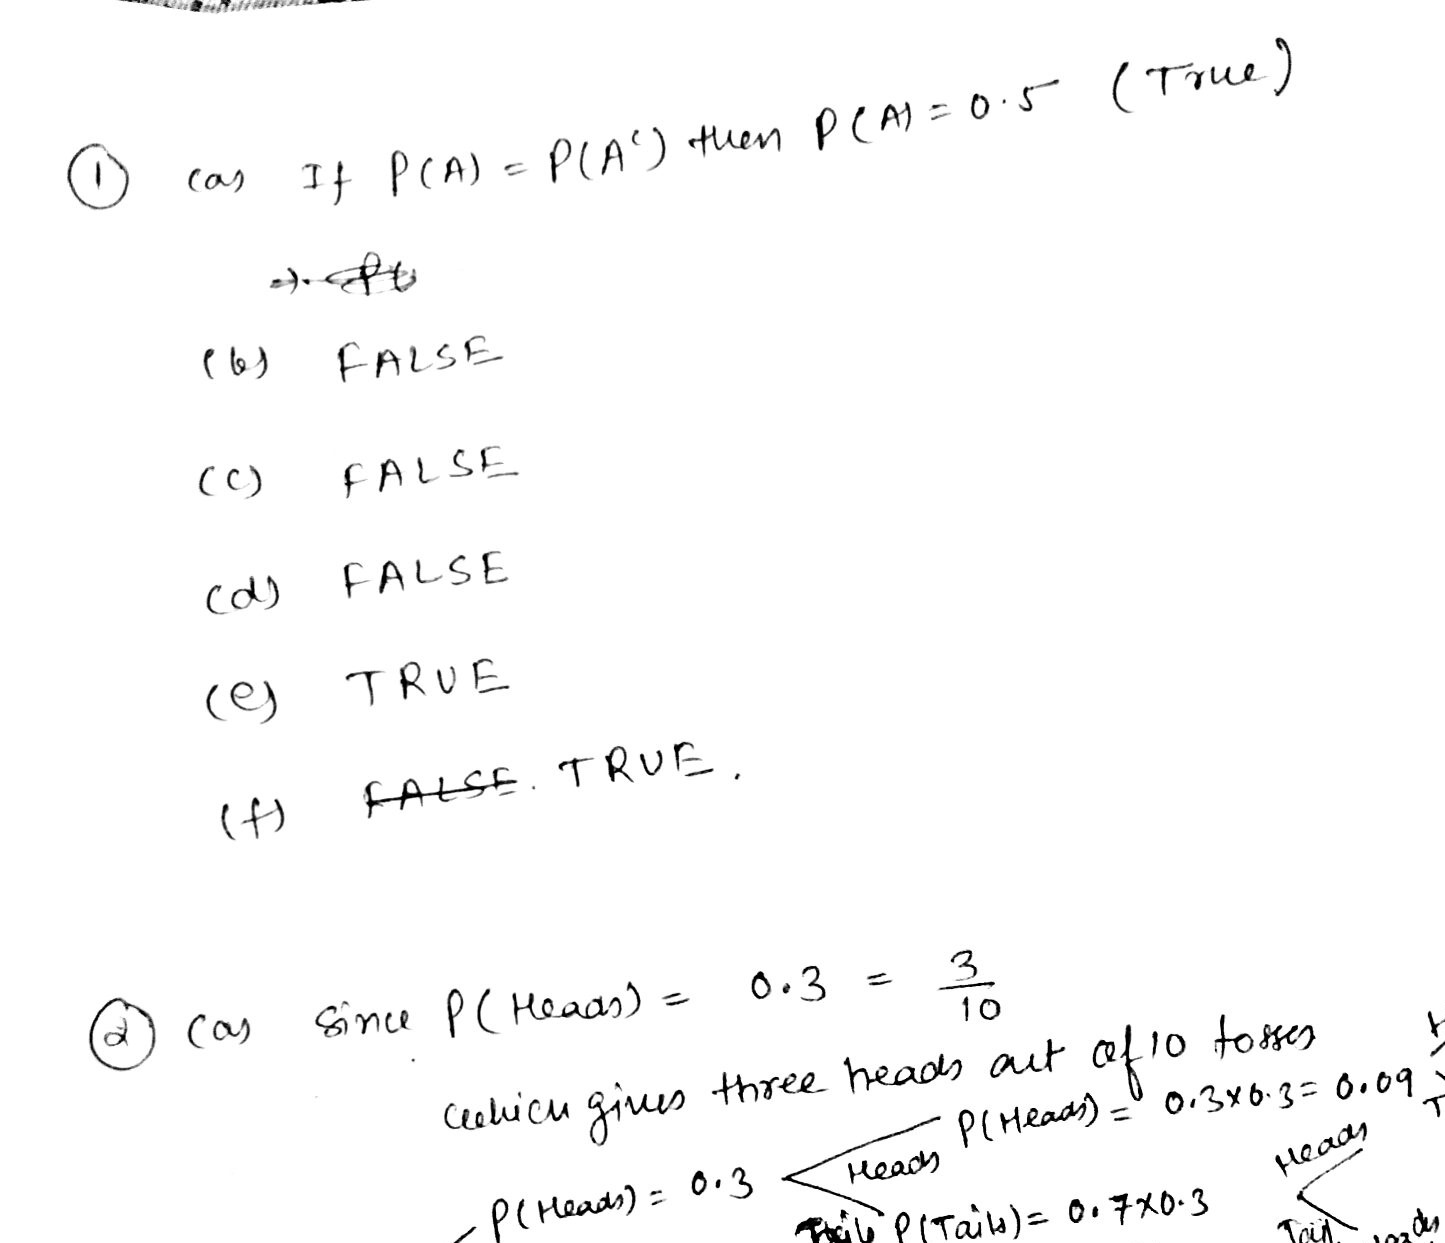 ① (a) If P(A) = P(A') then P(A) = 0.5 (True)
(b) FALSE
(c) FALSE
(d) FALSE
(e) TRUE
(f) FALSE. TRUE.
② (a) Since P(Heads) = 0.3 = 3/10
which gives three heads out of 10 tosses
P(Heads) = 0.3 × 0.3 = 0.09
P(Heads) = 0.3 Heads
Heads
Tails P(Tails) = 0.7 × 0.3
Tail